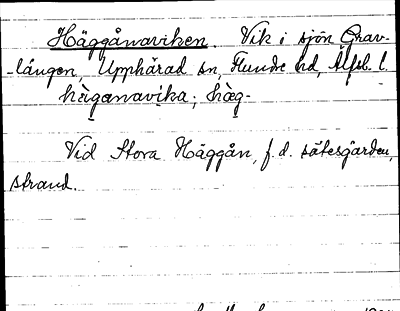 Häggånaviken. Vik i sjön Grav-
-lången, Upphärad sn, Flundre hd, Älfsb. l.
hàganavika; hæg-
Vid Stora Häggån, f. d. sätesgården,
strand.